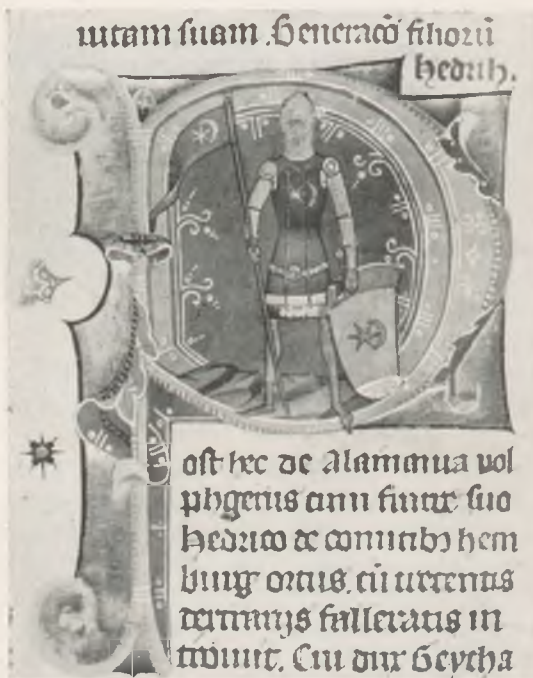 uitam suam. Generacō filiorū
hedrih.
Post hec de Alamania vol
phgerus cum fratre suo
Hedrico de comitibꝫ hem
burg ortus, cū trecentis
dextrarijs falleratis in
troiuit. Cui dux Geycha